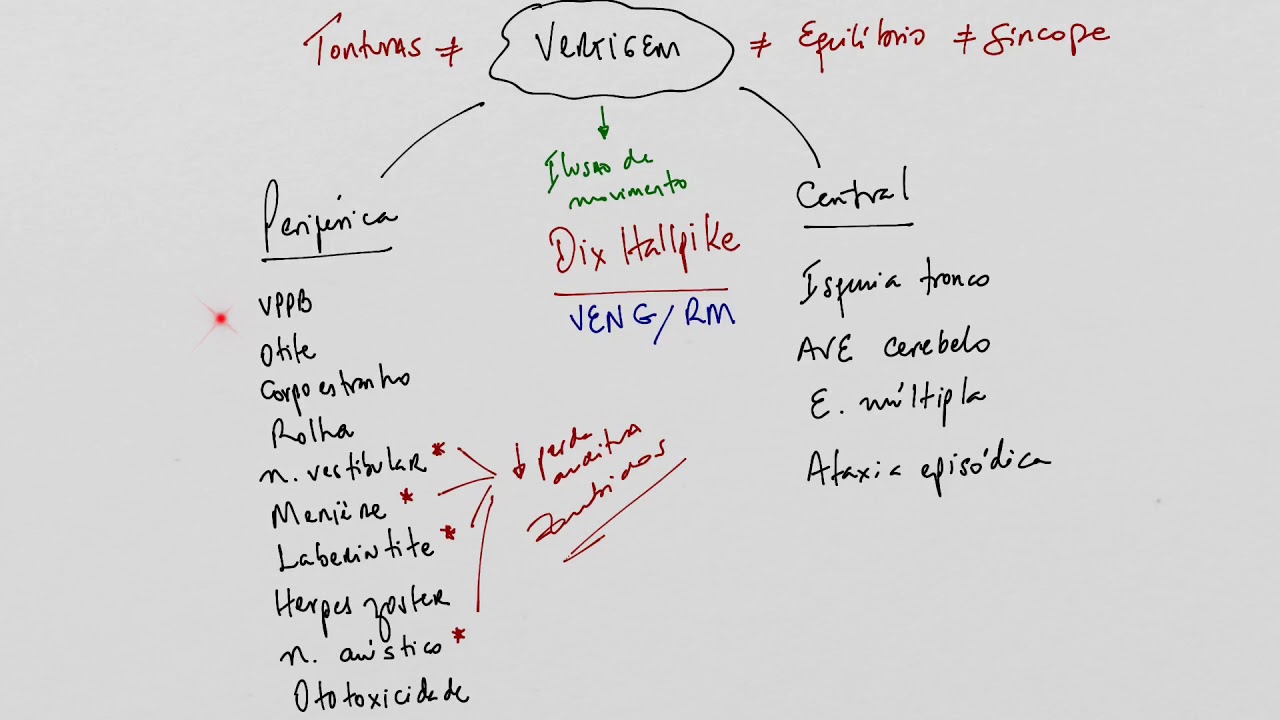 Tonturas ≠ VERTIGEM ≠ Equilíbrio ≠ Síncope
Ilusão de
movimento
Dix Hallpike
VENG/RM
Periférica
VPPB
Otite
Corpo estranho
Rolha
n. vestibular *
Menière *
Laberintite *
Herpes zoster
n. acústico *
Ototoxicidade
↓ perda
auditiva
Zumbidos
Central
Isquemia tronco
AVE cerebelo
E. múltipla
Ataxia episódica